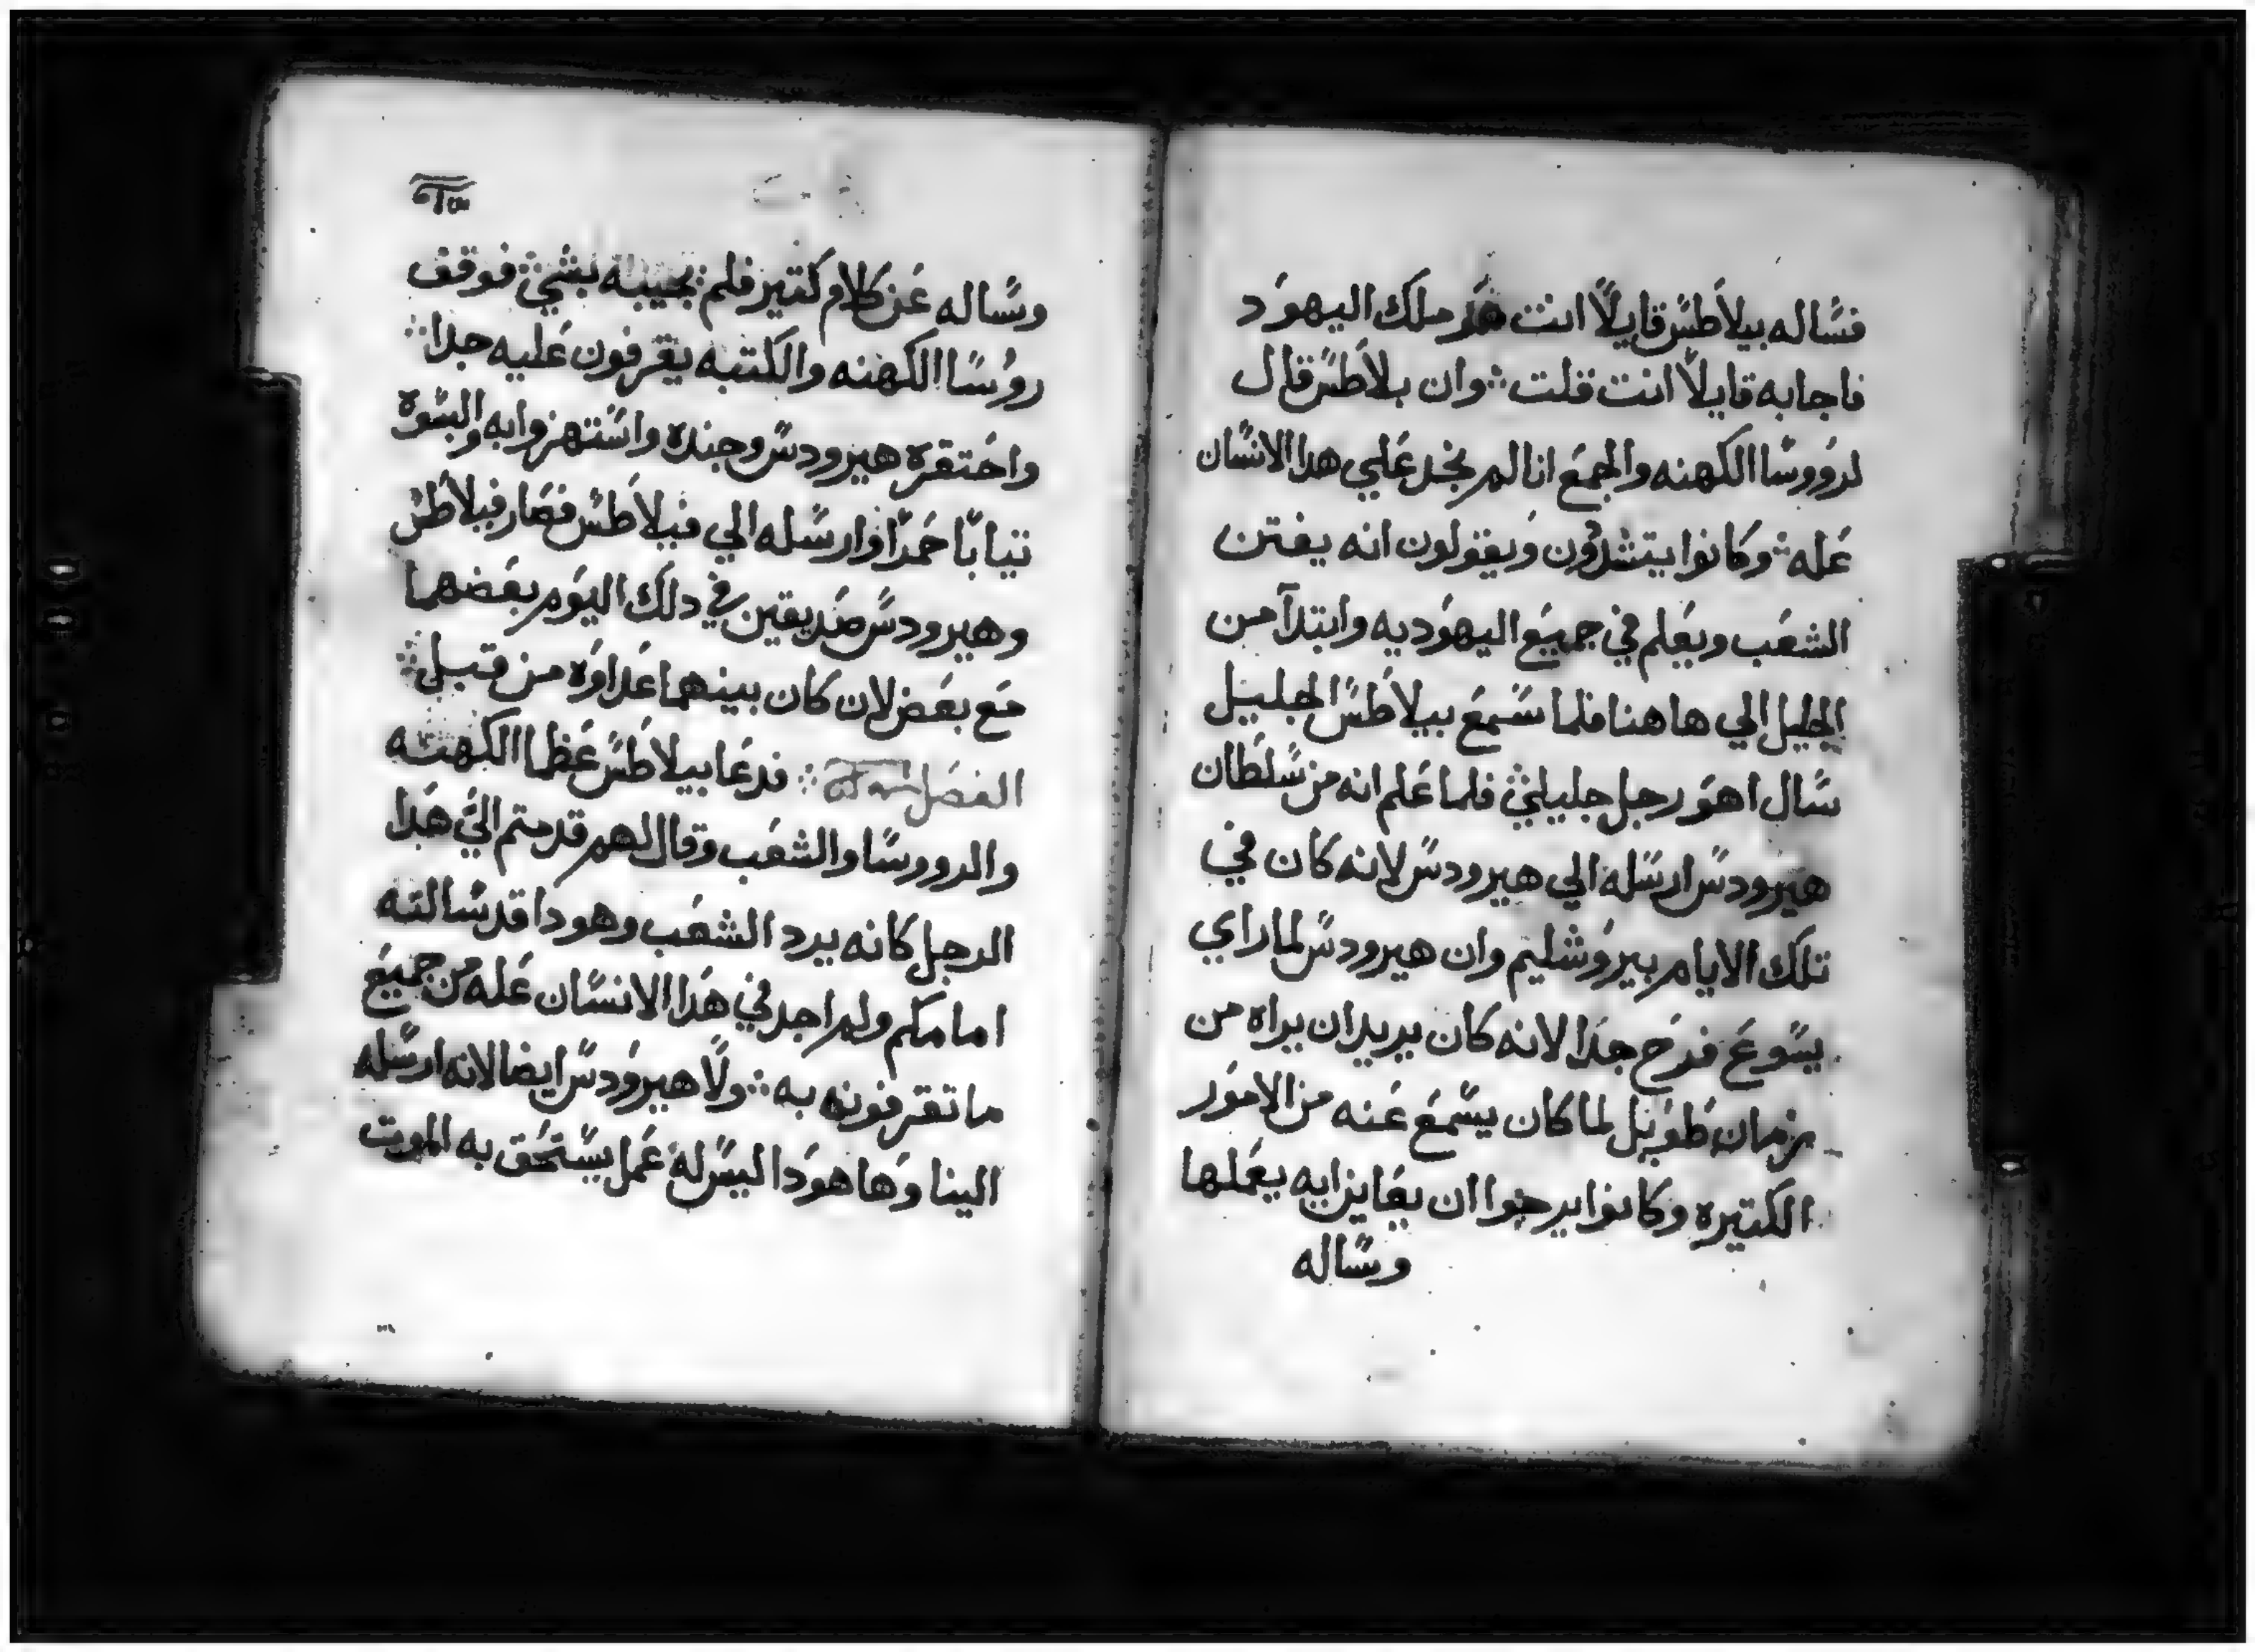 فساله بيلاطس قايلا انت هو ملك اليهود
فاجابه قايلا انت قلت وان بلاطس قال
لرووسا الكهنه والجمع انا لم نجد علي هدا الانسان
عله وكانوا يتشددون ويقولون انه يفتن
الشعب ويعلم في جميع اليهوديه وابتدآ من
الجليل الي هاهنا فلما سمع بيلاطس الجليل
سال اهو رجل جليلي فلما علم انه من سلطان
هيرودس ارسله الي هيرودس لانه كان في
تلك الايام بيروشليم وان هيرودس لما راي
يسوع فرح جدا لانه كان يريد ان يراه من
زمان طويل لما كان يسمع عنه من الامور
الكتيره وكانوا يرجوا ان يعاين ايه يعملها
وساله
وساله عن كلام كتير فلم يجيبه بشي فوقف
روسا الكهنه والكتبه يقرفون عليه جدا
واحتقره هيرودس وجنده واستهزوا به والبسوه
تيابا حمرا وارسله الي فيلاطس فصار فيلاطس
وهيرودس صديقين في دلك اليوم بعضهما
مع بعض لان كان بينهما عداوه من قبل
الفصل فدعا بيلاطس عظما الكهنه
والرووسا والشعب وقال لهم قدمتم الي هدا
الرجل كانه يرد الشعب وهودا قد سالته
امامكم ولم اجد في هدا الانسان عله من جميع
ما تقرفونه به ولا هيرودس ايضا لانه ارسله
الينا وها هودا ليس له عمل يستحق به الموت